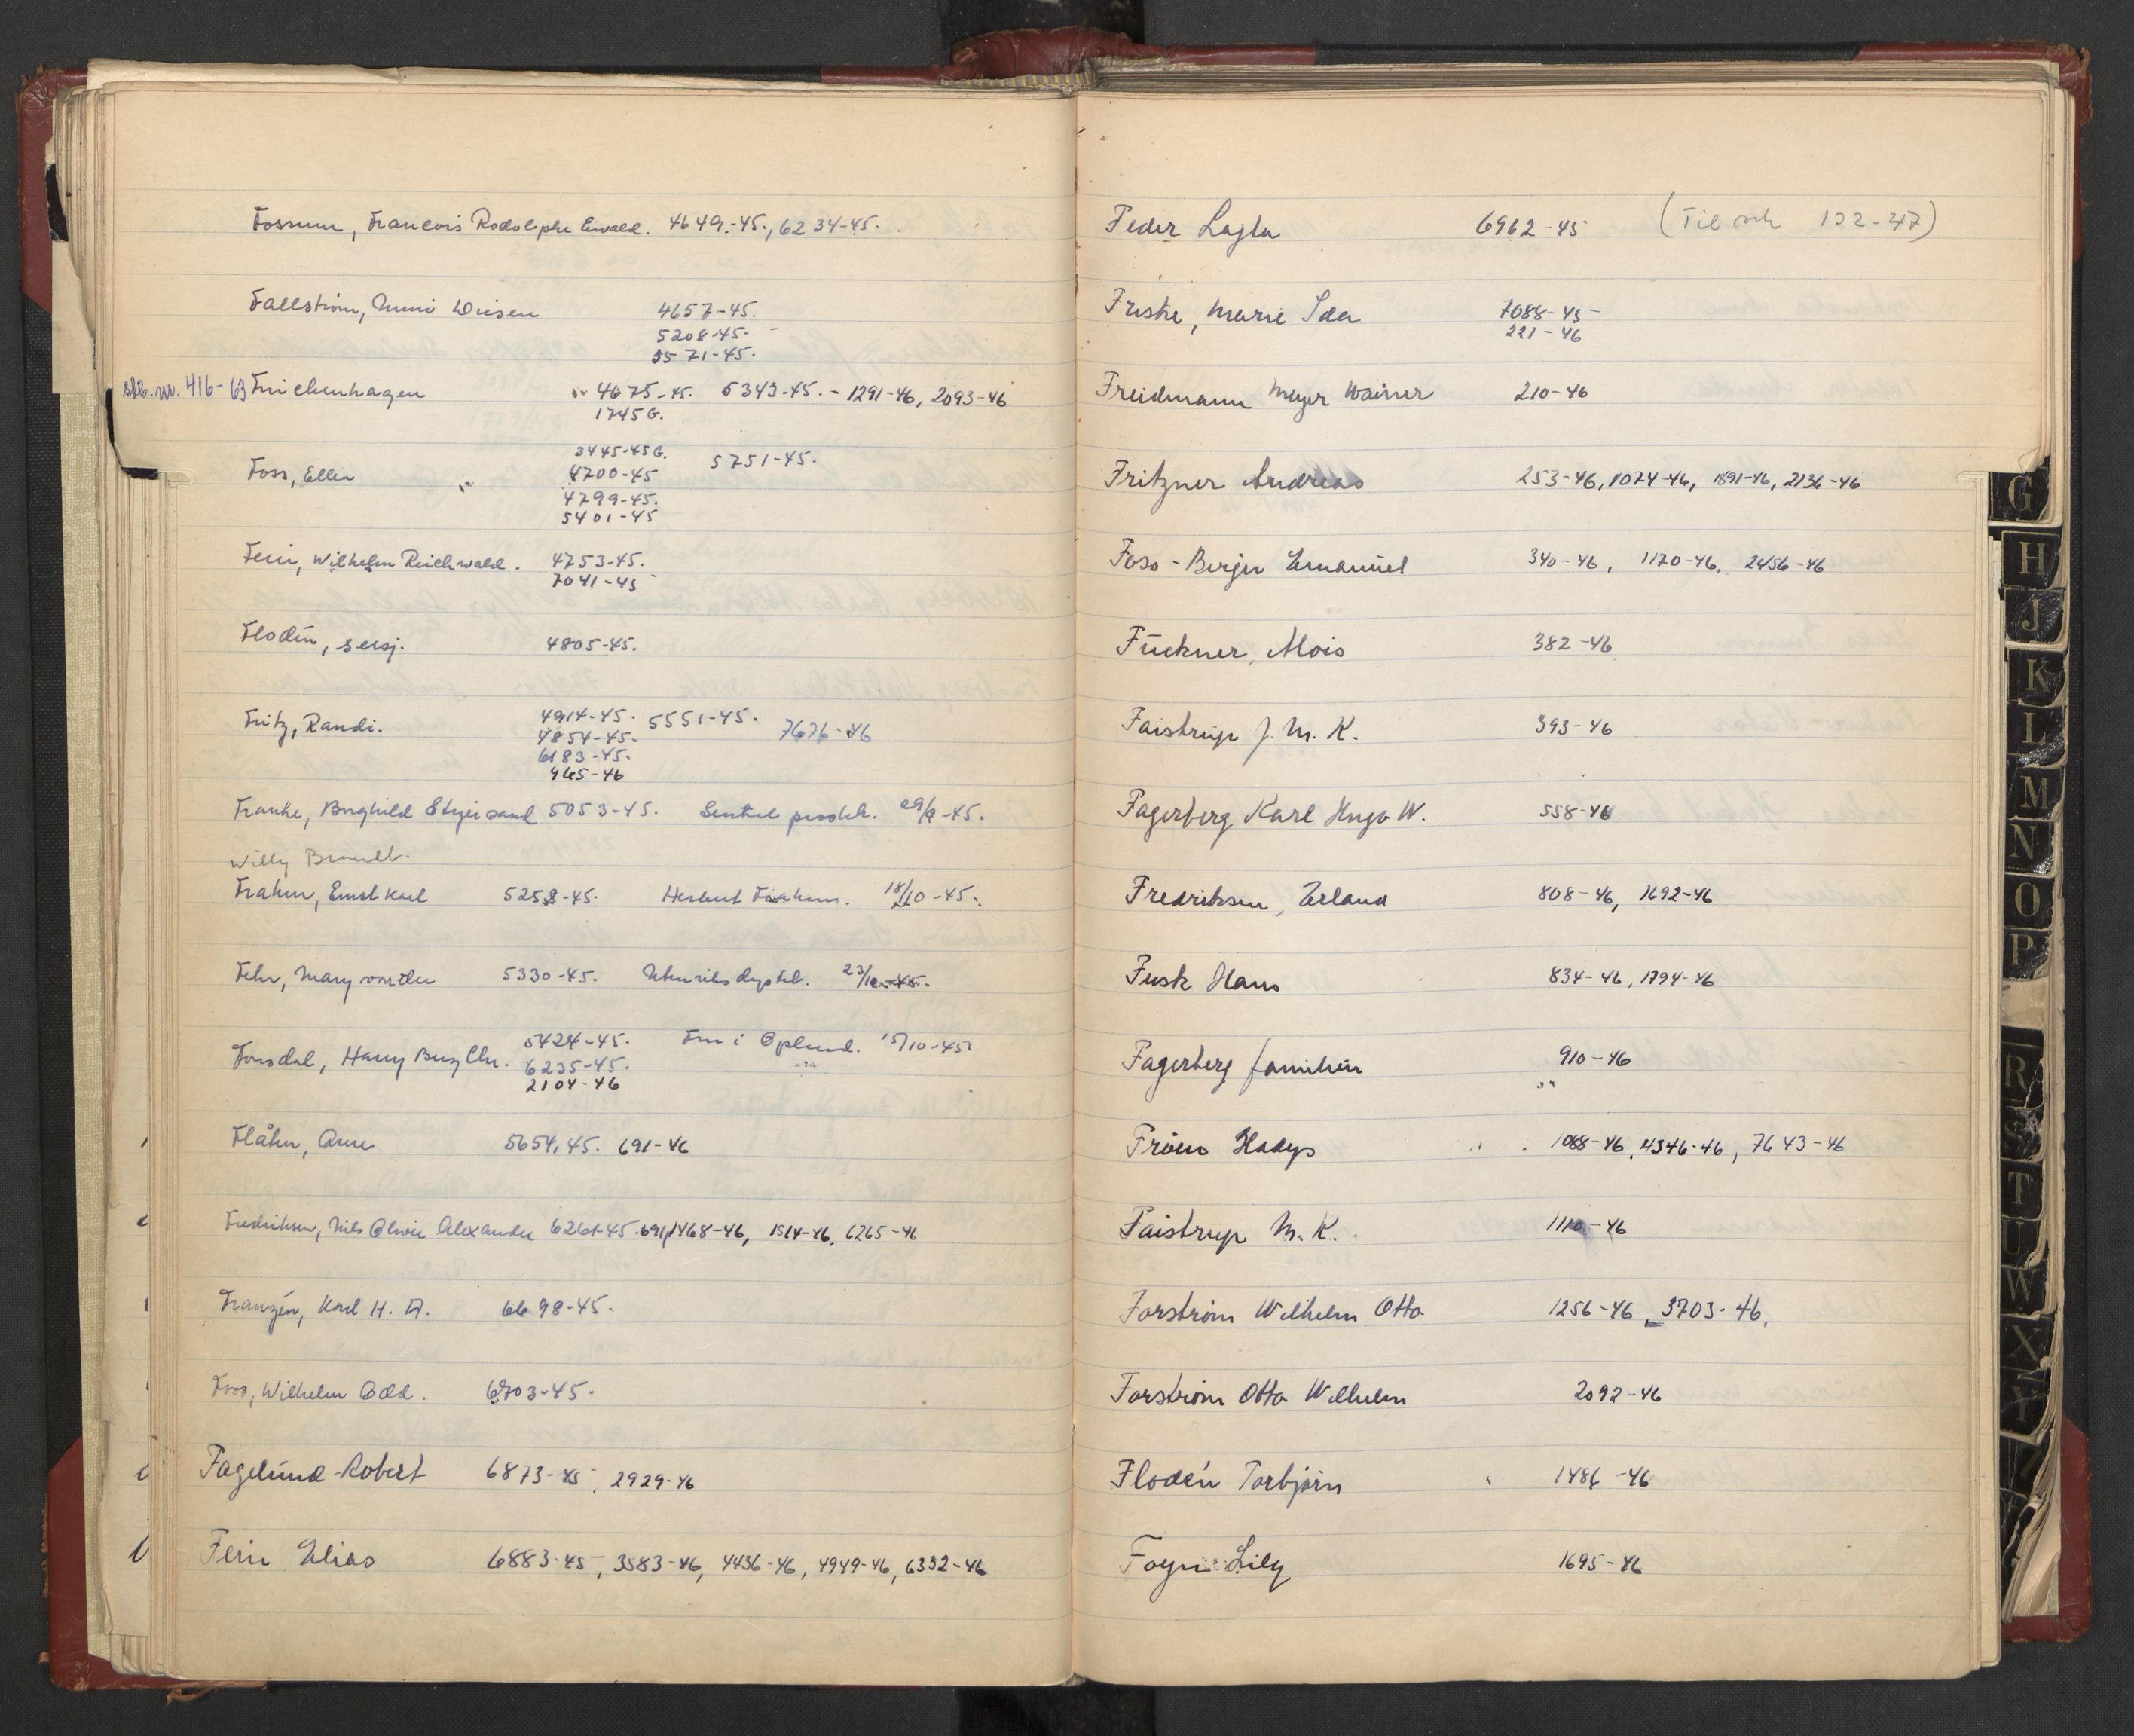 Fossum, Francois Rodolphe Ewald. 4649.-45., 6234-45.
Fallström, Nini Diesen 4657-45.
5208-45-
5571-45.
stb. nr. 416-63 Frichenhagen 4675-45. 5343-45.- 1291-46, 2093-46
1745 G.
3445-45 G. 5751-45.
Foss, Ellen 4700-45
4799-45.
5401-45
Fein, Wilhelm Reichwald. 4753-45.
7041-45
Flodin, sersj. 4805-45.
Fritz, Randi. 4914-45. 5551-45. 7676-46
4854-45.
6183-45.
465-46
Franke, Borghild 5053-45. 29/9-45.
Willy Brandt.
Frahm, Ernst Karl 5258-45. Herbert Frahm. 18/10-45.
Fehr, Mary von der 5330-45. Utenriksdeptet. 23/10-45.
Fonsdal, Harry 5424-45. Frn i Opland. 15/10-45
6235-45.
2104-46
Flåhn, Anne 5654,45. 691-46
Fredriksen, Nils Oliver Alexander 6261-45. 691, 1468-46, 1514-46, 6265-46
Franzén, Karl H. A. 6698-45.
Foss, Wilhelm Odd. 6703-45.
Fagelund Robert 6873-45, 2929-46
Fein Elias 6883-45, 3583-46, 4436-46, 4949-46, 6332-46
Feder Lagla 6962-45 (Til sak 132-47)
Friske, Marie Ida 7088-45-
221-46
Freidmann Meyer Wainer 210-46
Fritzner Andreas 253-46, 1074-46, 1891-46, 2136-46
Foss-Berger Emanuel 340-46, 1170-46, 2456-46
Fückner, Alois 382-46
Faistrup J. M. K. 393-46
Fagerberg Karl Hugo W. 558-46
Fredriksen, Erland 808-46, 1692-46
Fusk Hans 834-46, 1794-46
Fagerberg familien 910-46
Fröen Gladys 1088-46, 4346-46, 7643-46
Faistrup M. K. 1110-46
Forström Wilhelm Otto 1256-46, 3703-46.
Forström Otto Wilhelm 2092-46
Flodén Torbjörn 1486-46
Foyn Lily 1695-46
G
H
J
K
L
M
N
O
P
R
S
T
U
W
X
Y